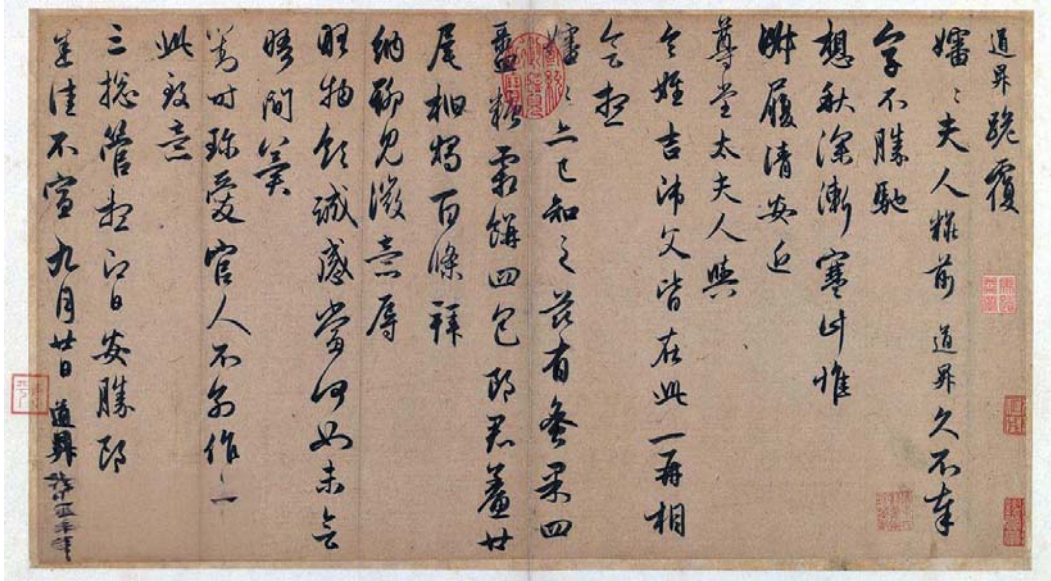 道昇跪覆
嬸〻夫人粧前 道昇久不奉
字不勝馳
想秋深漸寒計惟
淑履清安近
尊堂太夫人與
令姪吉師父皆在此一再相
會想
嬸〻亦已知之茲有蜜果四
盝糖霜餅四包郎君鯗廿
尾柏燭百條拜
納聊見微意辱
物領誠感當何如未會
晤間冀
對時珍愛官人不別作
此致意
三總管想即日安勝郎
佳不宣 九月廿日 道昇